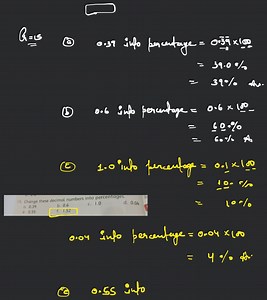 Q=15
a 0.39 into percentage = 0.39 × 100
= 39.0 %
= 39% Ans.
b 0.6 into percentage = 0.6 × 100
= 60 %
= 60% Ans
c 1.0 into percentage = 0.1 × 100
= 10 %
= 10%
Change these decimal numbers into percentages.
a. 0.39 b. 0.6 c. 1.0 d. 0.04
0.04 into percentage = 0.04 × 100
= 4% Ans.
e 0.55 into